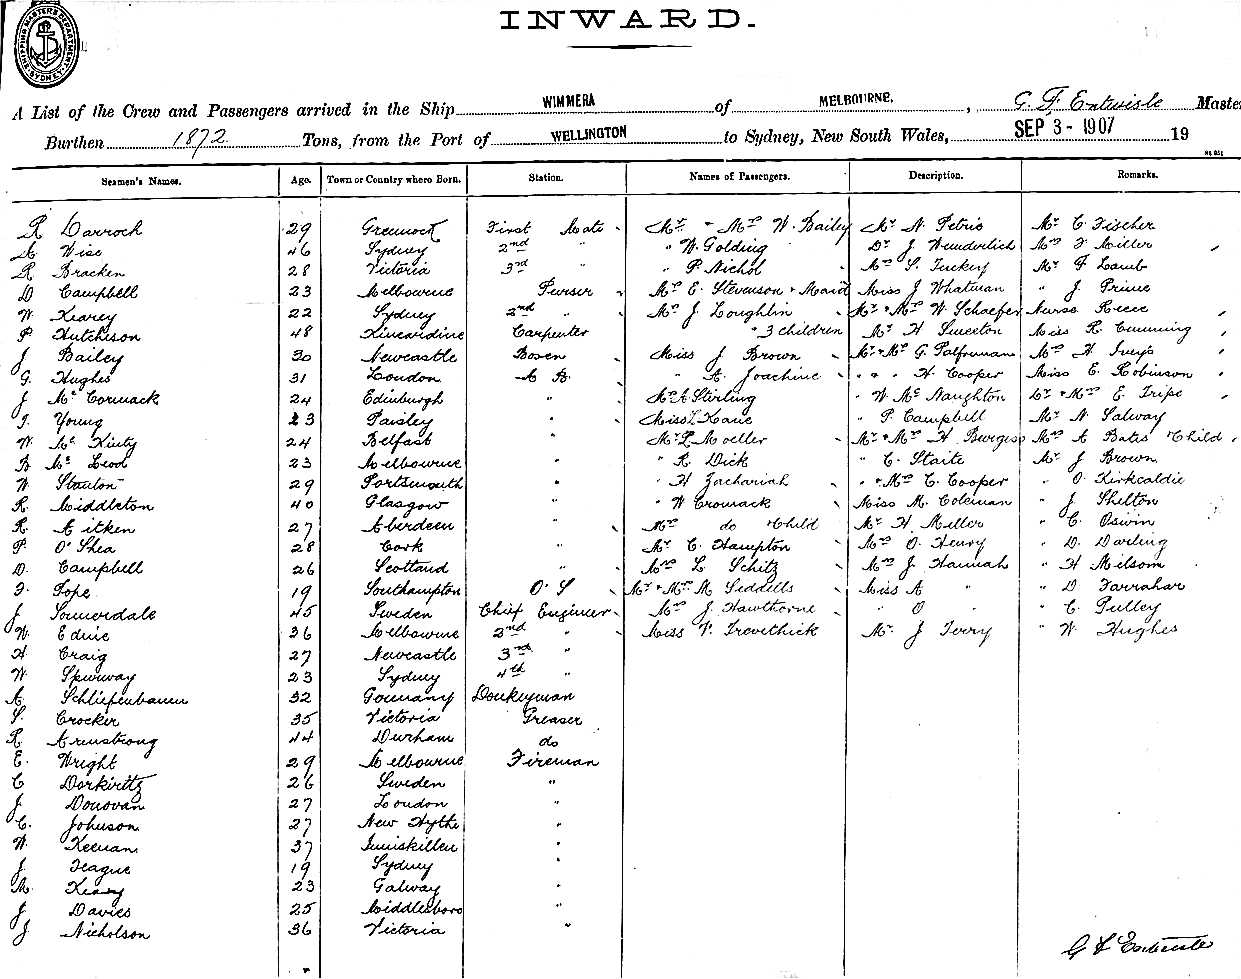 SHIPPING MASTER'S DEPARTMENT SYDNEY
INWARD.
A List of the Crew and Passengers arrived in the Ship WIMMERA of MELBOURNE, G. F. Entwisle Master
Burthen 1872 Tons, from the Port of WELLINGTON to Sydney, New South Wales, SEP 3 - 1907 19
Seamen's Names. Age. Town or Country where Born. Station. Names of Passengers. Description. Remarks.
R Darroch 29 Greenock First Mate Mr & Mrs W. Bailey Mr N. Petris Mr C Fischer
Wise 46 Sydney 2nd " " W Golding Dr J Wunderlich Mrs F Miller
R Bracken 28 Victoria 3rd " " P. Nichol Mrs S. Tuckey Mr F Lamb
D Campbell 23 Melbourne Purser Mrs E. Stevenson & Maid Miss J Whatman " J Prime
W Kearey 22 Sydney 2nd " Mrs J Loughlin Mr & Mrs W. Schaefer Nurse Reece
P Hutchison 48 Kincardine Carpenter " 3 children Mr H Sweeton Miss R Cumming
J Bailey 30 Newcastle Bosen Miss J Brown Mr & Mrs G. Palfreman Mrs H Iveys
G. Hughes 31 London A B " A. Joachine " " " H Cooper Miss E. Robinson
J McCormack 24 Edinburgh " Mr A Stirling " W McNaughton Dr & Mrs E Tripe
J. Young 23 Paisley " Miss L Kane " P. Campbell Mr N Salway
W McKinty 24 Belfast " Mr L Moeller Mr & Mrs H Burgess Mrs A Bates & Child
B McLeod 23 Melbourne " " R Dick " C. Staite Mr J Brown
W Stanton 29 Portsmouth " " H Zachariah " & Mrs C. Cooper " O Kirkcaldie
R. Middleton 40 Glasgow " " W Cromack Miss M. Coleman " J Shelton
R. Aitken 27 Aberdeen " Mrs do & Child Mr H Miller " C. Oswin
P. O'Shea 28 Cork " Mr C. Hampton Mrs O. Henry " D. Darling
D. Campbell 26 Scotland " Mrs L Schitz Mrs J. Hannah " H Milsom
F. Pope 19 Southampton O. S Mr & Mrs M Siddells Miss A " " D Farrahar
J Somerdale 45 Sweden Chief Engineer Mrs J. Hawthorne " O " " C. Pulley
W. Edine 36 Melbourne 2nd " Miss F. Trevethick Mr J Terry " W. Hughes
H Craig 27 Newcastle 3rd "
W Spurway 23 Sydney 4th "
A Schliefenbaum 32 Germany Donkeyman
S. Crocker 35 Victoria Greaser
R Armstrong 44 Durham do
E. Wright 29 Melbourne Fireman
C Dorkirtz 26 Sweden "
J. Donovan 27 London "
C. Johnson 27 New Hythe "
W. Keenan 37 Inniskillen "
J. Teague 19 Sydney "
M. Keary 23 Galway "
J Davies 25 Middlesboro "
J Nicholson 36 Victoria "
G F Entwisle